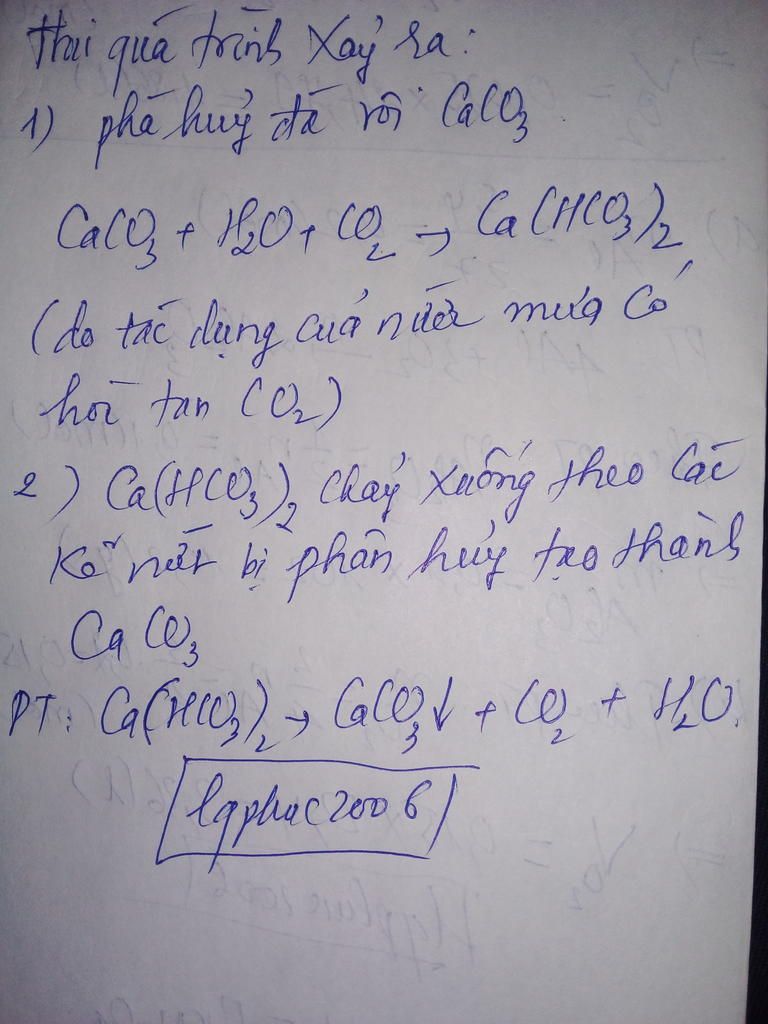 Hai quá trình xảy ra:
1) phá huỷ đá vôi CaCO3.
CaCO3 + H2O + CO2 → Ca(HCO3)2
(do tác dụng của nước mưa có
hòa tan CO2)
2) Ca(HCO3)2 chảy xuống theo các
kẽ nứt bị phân hủy tạo thành
CaCO3
PT: Ca(HCO3)2 → CaCO3↓ + CO2 + H2O.
lqphuc2006